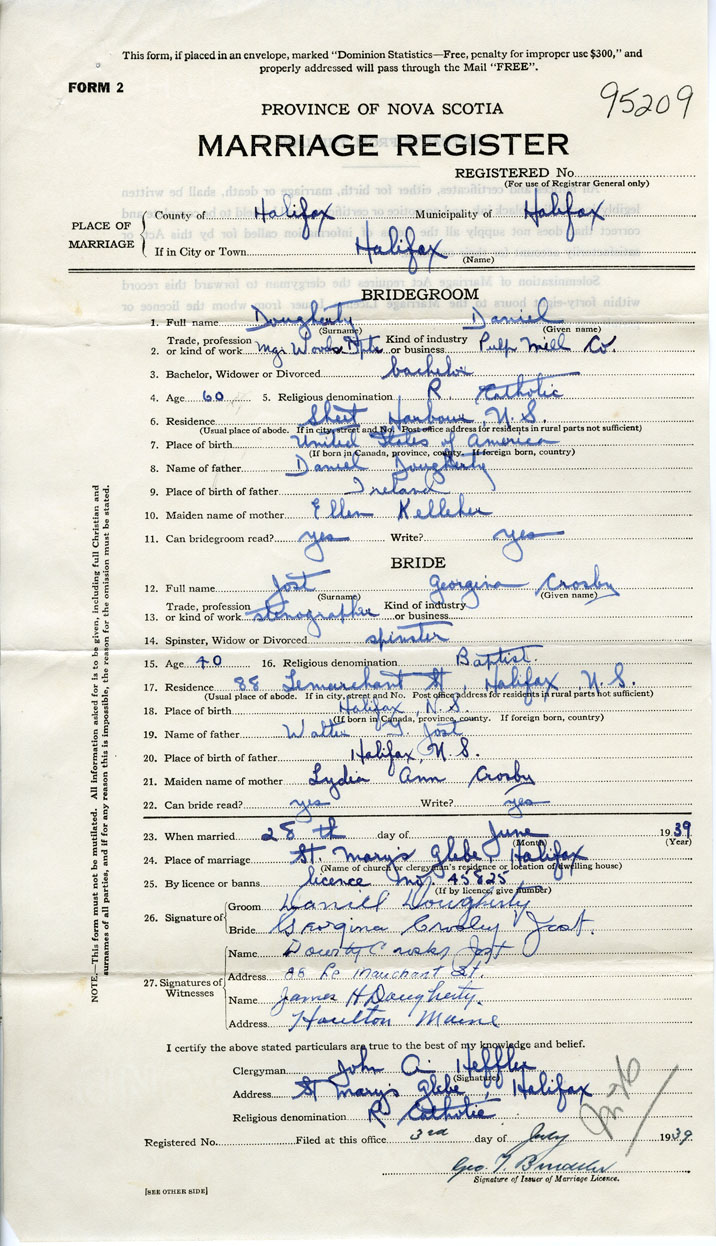 This form, if placed in an envelope, marked "Dominion Statistics—Free, penalty for improper use $300," and
properly addressed will pass through the Mail "FREE".
FORM 2
95209
PROVINCE OF NOVA SCOTIA
MARRIAGE REGISTER
REGISTERED No.
(For use of Registrar General only)
PLACE OF MARRIAGE
County of Halifax Municipality of Halifax
If in City or Town Halifax
(Name)
BRIDEGROOM
1. Full name Dougherty Daniel
(Surname) (Given name)
2. Trade, profession or kind of work Mgr Woods Dpts Kind of industry or business Pulp Mill Co.
3. Bachelor, Widower or Divorced bachelor
4. Age 60 5. Religious denomination R. Catholic
6. Residence Sheet Harbour N.S.
(Usual place of abode. If in city, street and No. Post office address for residents in rural parts not sufficient)
7. Place of birth United States of America
(If born in Canada, province, county. If foreign born, country)
8. Name of father Daniel Dougherty
9. Place of birth of father Ireland
10. Maiden name of mother Ellen Kelleher
11. Can bridegroom read? yes Write? yes
BRIDE
12. Full name Jost Georgina Crosby
(Surname) (Given name)
13. Trade, profession or kind of work stenographer Kind of industry or business
14. Spinster, Widow or Divorced spinster
15. Age 40 16. Religious denomination Baptist.
17. Residence 88 Lemarchant St, Halifax, N.S.
(Usual place of abode. If in city, street and No. Post office address for residents in rural parts not sufficient)
18. Place of birth Halifax, N.S.
(If born in Canada, province, county. If foreign born, country)
19. Name of father Walter Jost
20. Place of birth of father Halifax, N.S.
21. Maiden name of mother Lydia Ann Crosby
22. Can bride read? yes Write? yes
23. When married 28th day of June 1939
(Month) (Year)
24. Place of marriage St. Mary's Glebe, Halifax
(Name of church or clergyman's residence or location of dwelling house)
25. By licence or banns licence no. 45825
(If by licence, give number)
26. Signature of
Groom Daniel Dougherty
Bride Georgina Crosby Jost.
27. Signatures of Witnesses
Name Jost
Address 88 Le Marchant St.
Name James H Dougherty.
Address Houlton Maine
I certify the above stated particulars are true to the best of my knowledge and belief.
Clergyman John A. Heffler
(Signature)
Address St Mary's Glebe, Halifax
Religious denomination R Catholic
Registered No. Filed at this office 3rd day of July 1939.
Geo. T.
Signature of Issuer of Marriage Licence.
[SEE OTHER SIDE]
NOTE.—This form must not be mutilated. All information asked for is to be given, including full Christian and
surnames of all parties, and if for any reason this is impossible, the reason for the omission must be stated.